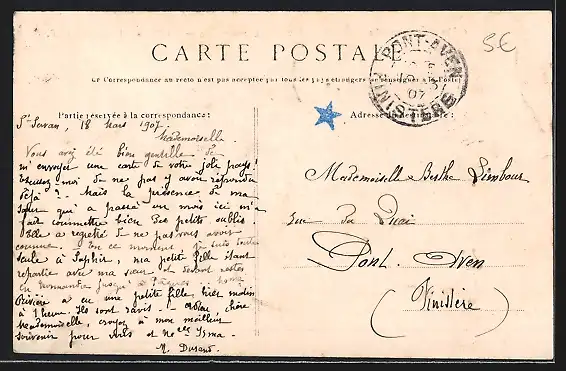 CARTE POSTALE
Ce Correspondance au recto n'est pas acceptée par tous les pays étrangers (se renseigner à la Poste)
PONT-AVEN
07
FINISTERE
5€
Partie réservée à la correspondance:
Adresse du destinataire:
St Servan, 18 Mars 1907
Mademoiselle
Vous avez été bien gentille de
m'envoyer une carte de votre joli pays!
Excusez-moi de ne pas y avoir répondu
déjà? Mais la présence de ma
sœur qui a passé un mois ici m'a
fait commettre bien des petits oublis
Elle a regretté de ne pas vous avoir
connue. En ce moment, je suis toute
seule à Saphir, ma petite fille étant
repartie avec ma sœur et devant rester
en Normandie jusqu'à Pâques
a eu une petite fille hier matin
à 1 heure. Ils sont ravis. chère
Mademoiselle, croyez à mon meilleur
souvenir pour et Melle
M. Durand.
Mademoiselle Berthe Limbour
rue du Quai
Pont-Aven
(Finistère)